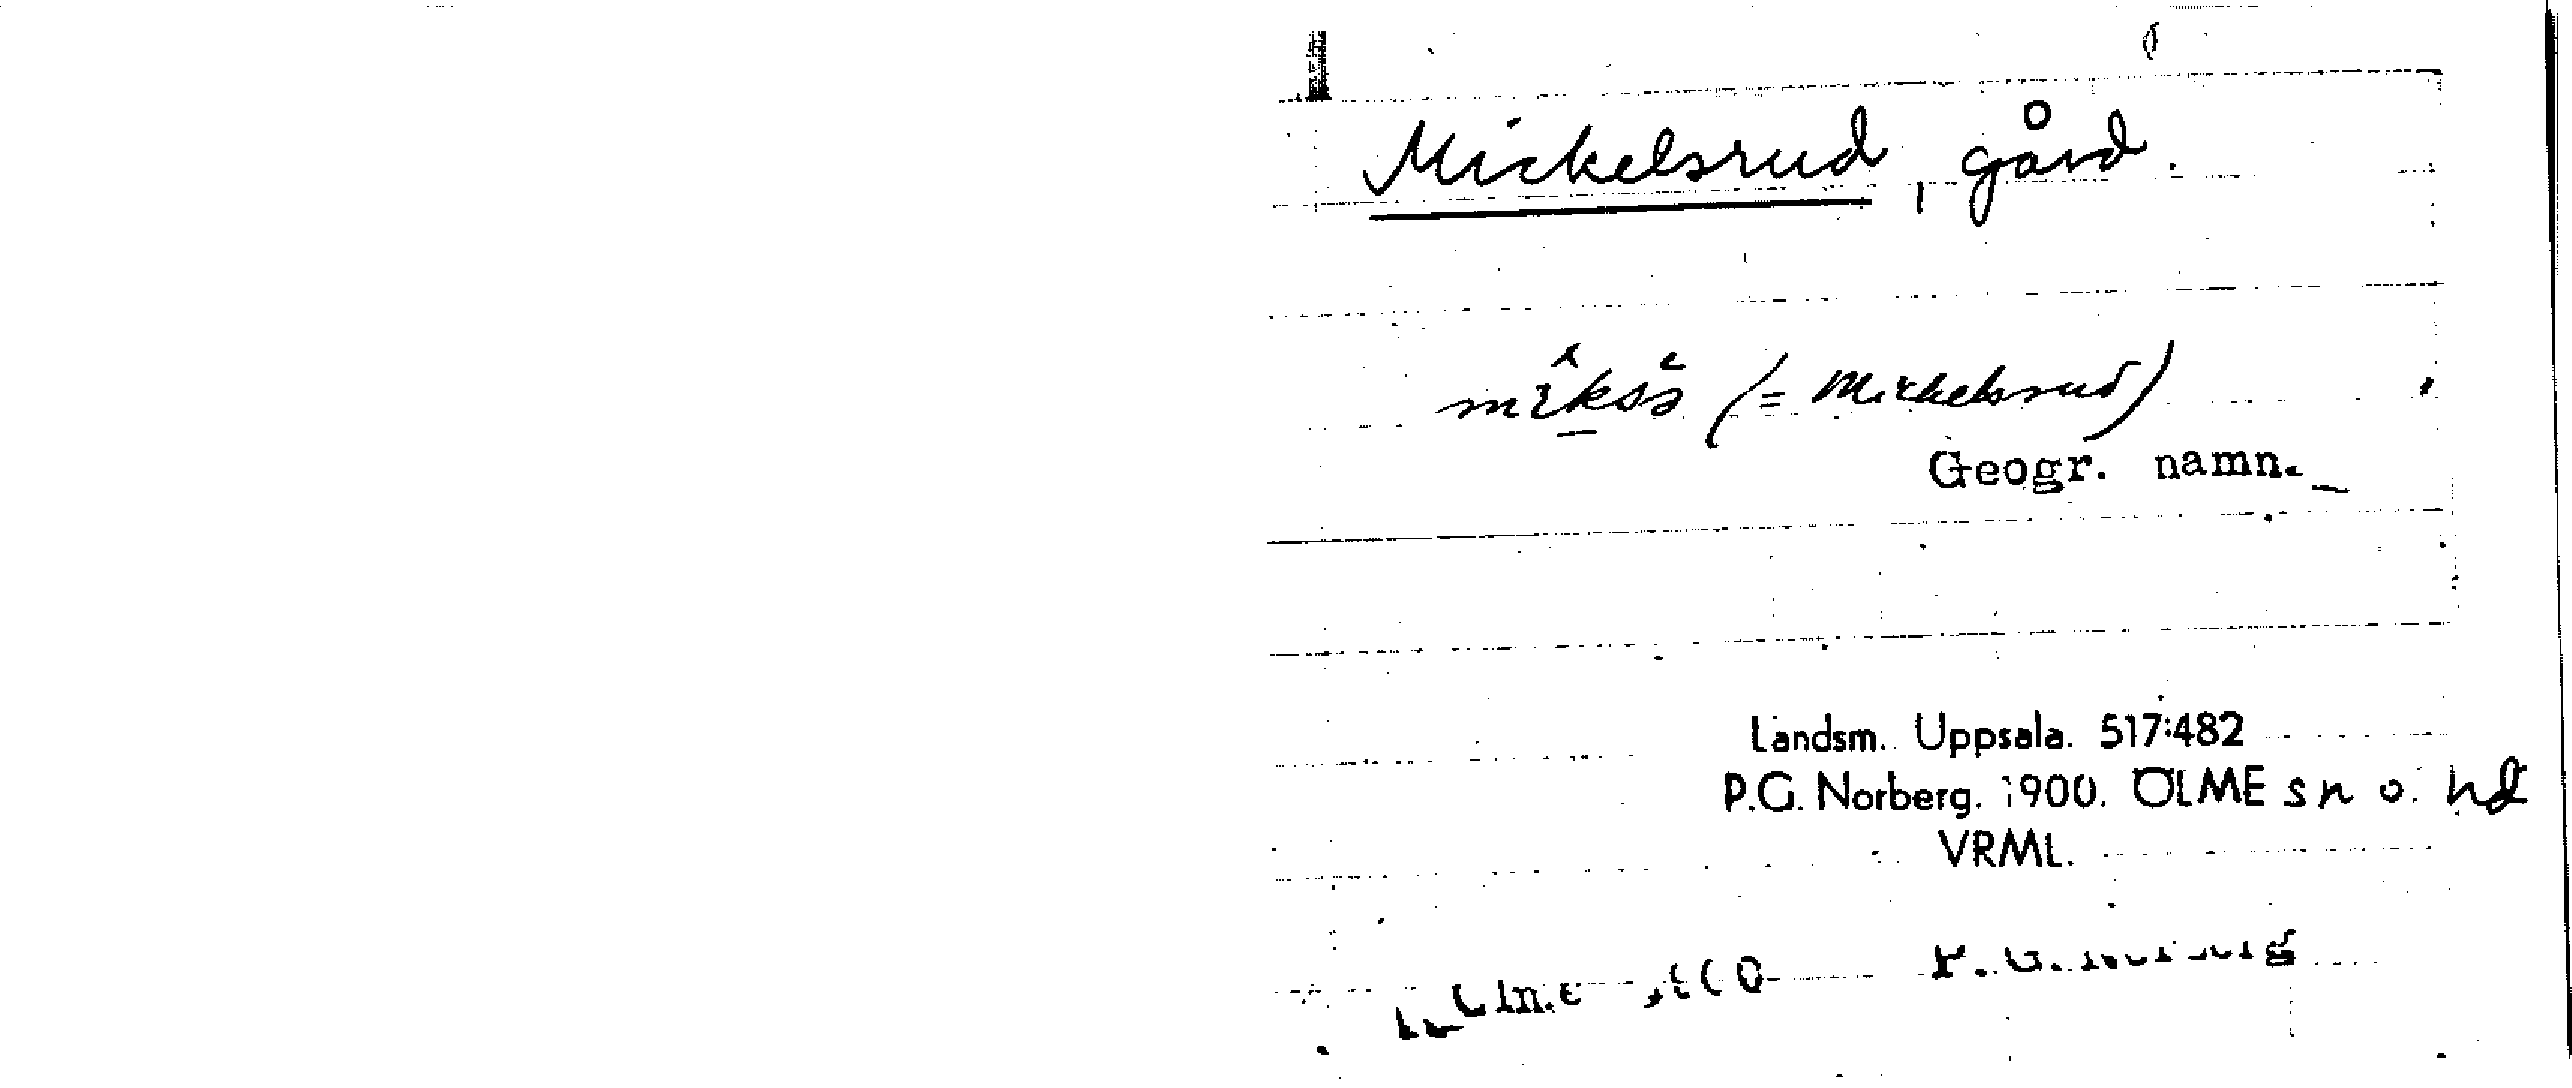 Mickelsrud, gård.
(= Mickelsrud)
Geogr. namn.
Landsm. Uppsala. 517:482
P.G. Norberg. 1900. ÖLME sn o. hd
VRML.